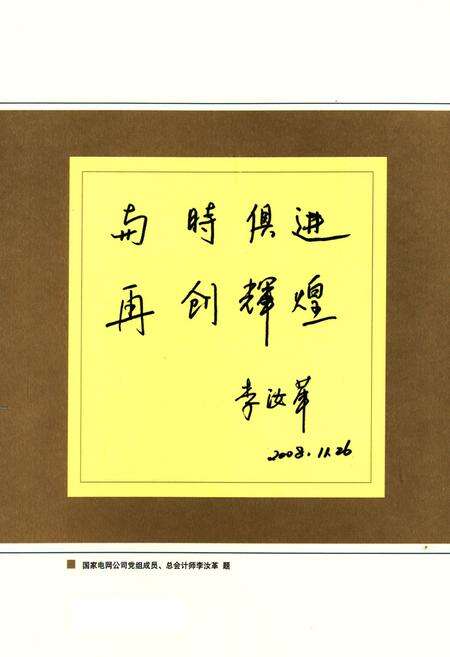 与時俱进
再创輝煌
李汝革
2008.11.26
国家电网公司党组成员、总会计师李汝革 题